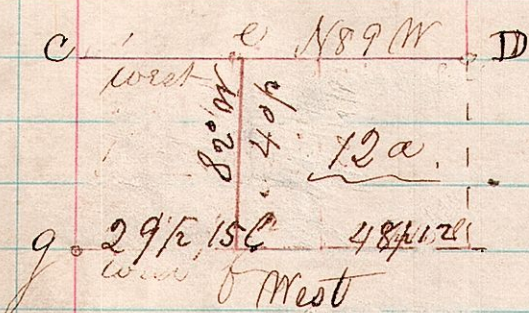 C e N89W D
west
82°W 40p
12a.
g 29p, 15l 48p 12l
West